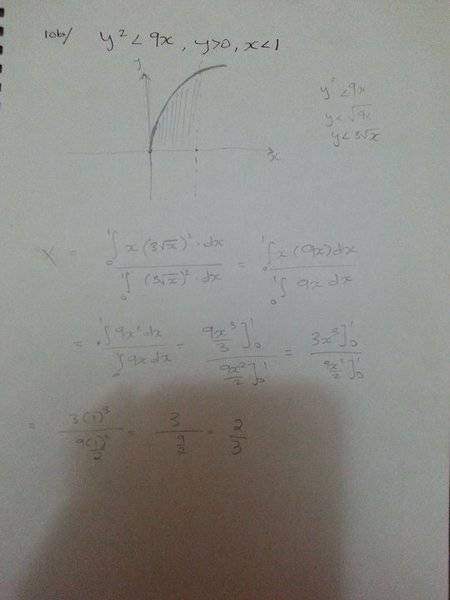 10b/ y² < 9x , y>0, x<1
y
x
y² < 9x
y < √9x
y < 3√x
X = ₀¹∫ x(3√x)² · dx / ₀¹∫ (3√x)² · dx = ₀¹∫ x(9x)dx / ₀¹∫ 9x dx
= ₀¹∫ 9x² dx / ₀∫ 9x dx = 9x³/3 ]₀¹ / 9x²/2 ]₀¹ = 3x³]₀¹ / 9x²/2 ]₀¹
= 3(1)³ / 9(1)²/2 = 3 / 9/2 = 2/3